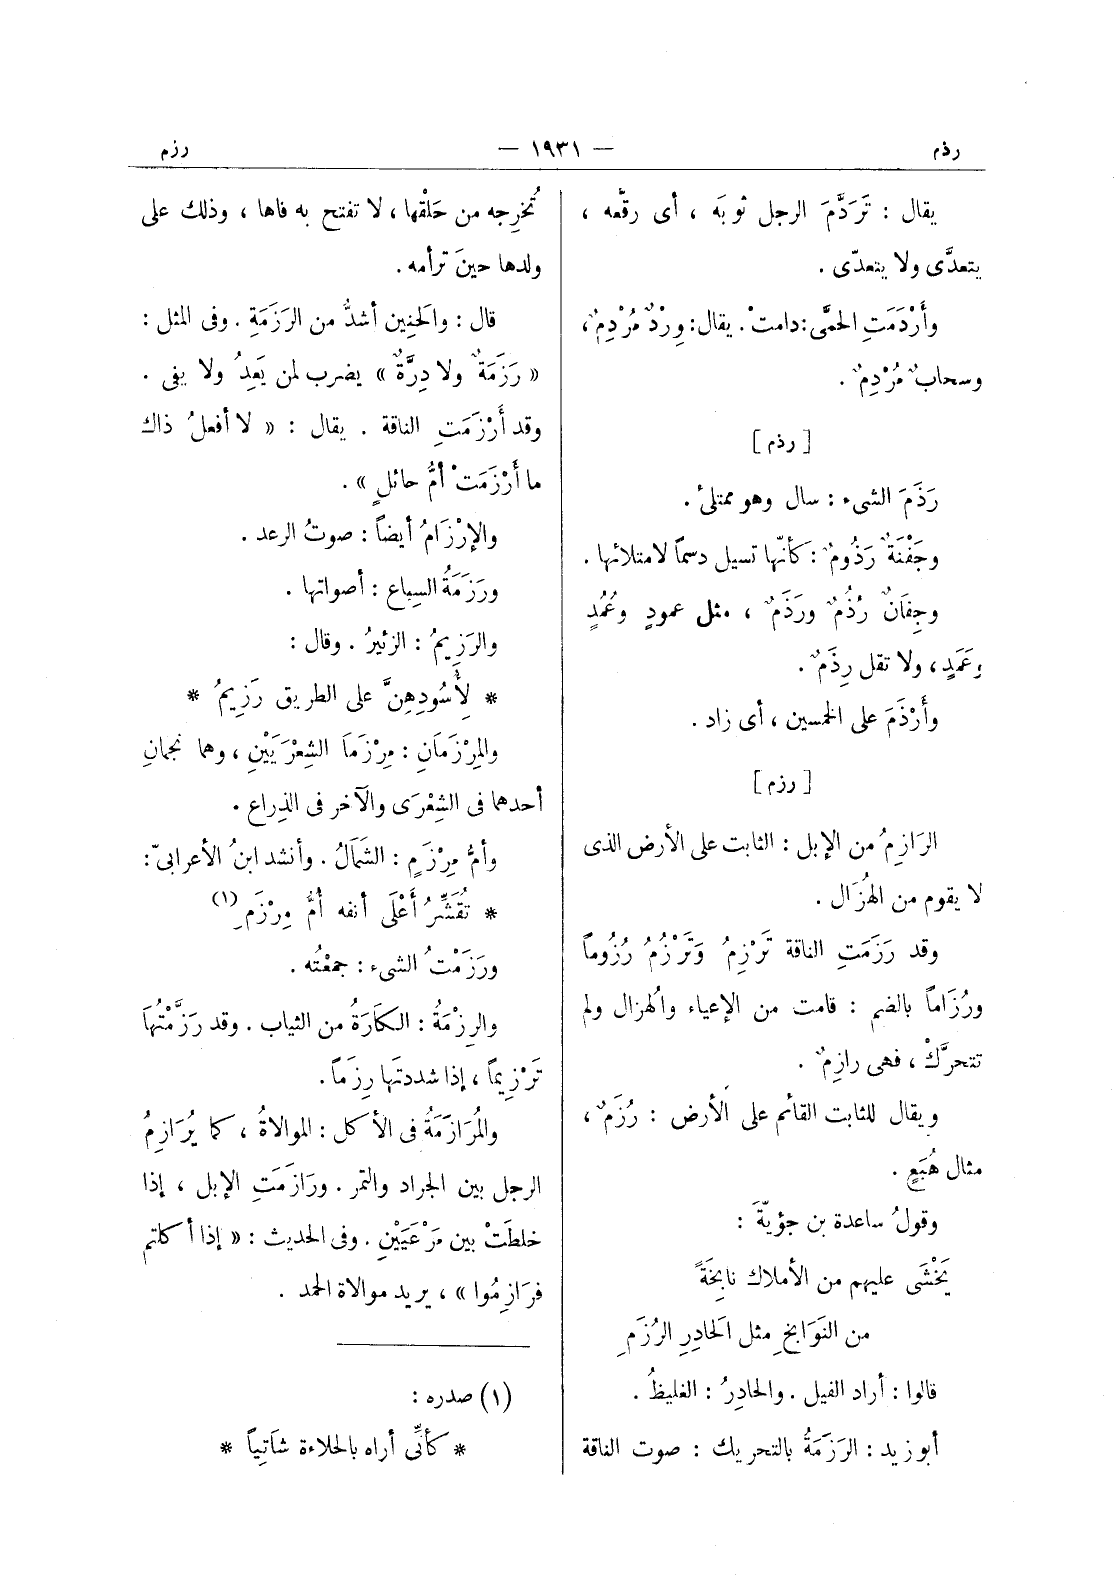 رذم — ١٩٣١ — رزم
يقال : تَرَدَّمَ الرجل ثوبَه ، أى رقّعه ،
يتعدَّى ولا يتعدّى .
وأَرْدَمَتِ الحمَّى : دامتْ . يقال : وِرْدٌ مُرْدِمٌ ،
وسحابٌ مُرْدِمٌ .
[ رذم ]
رَذَمَ الشىء : سال وهو ممتلئ .
وجَفْنَةٌ رَذُومٌ : كأنّها تسيل دسمًا لامتلائها .
وجِفَانٌ رُذُمٌ ورَذَمٌ ، مثل عمودٍ وعُمُدٍ
وعَمَدٍ ، ولا تقل رِذَمٌ .
وأَرْذَمَ على الخمسين ، أى زاد .
[ رزم ]
الرَازِمُ من الإبل : الثابت على الأرض الذى
لا يقوم من الهُزَال .
وقد رَزَمَتِ الناقة تَرْزِمُ وَتَرْزُمُ رُزُوماً
ورُزَاماً بالضم : قامت من الإعياء والهزال ولم
تتحرَّكْ ، فهى رازِمٌ .
ويقال للثابت القائم على الأرض : رُزَمٌ ،
مثال هُبَعٍ .
وقولُ ساعدة بن جؤيّةَ :
يَخْشَى عليهم من الأملاك نابِخَةً
من النَوَابِخِ مثل الحَادِرِ الرُزَمِ
قالوا : أراد الفيل . والحادِرُ : الغليظُ .
أبو زيد : الرَزَمَةُ بالتحريك : صوت الناقة
تُخرِجه من حَلْقها ، لا تفتح به فاها ، وذلك على
ولدها حينَ ترأمه .
قال : والحَنِين أشدُّ من الرَزَمَةِ . وفى المثل :
« رَزَمَةٌ ولا دِرَّةٌ » يضرب لمن يَعِدُ ولا يفى .
وقد أَرْزَمَتِ الناقة . يقال : « لا أفعلُ ذاك
ما أَرْزَمَتْ أمُّ حائلٍ » .
والإرْزَامُ أيضاً : صوتُ الرعد .
ورَزَمَةُ السِباع : أصواتها .
والرَزِيمُ : الزئيرُ . وقال :
* لِأُسُودِهِنَّ على الطريق رَزِيمُ *
والمِرْزَمَانِ : مِرْزَمَا الشِعْرَيَيْنِ ، وهما نجمانِ
أحدهما فى الشِعْرَى والآخر فى الذِراع .
وأمُّ مِرْزَمٍ : الشَمَالُ . وأنشد ابنُ الأعرابىّ :
* تُقَشِّرُ أَعْلَى أنفه أُمُّ مِرْزَمِ (١)
ورَزَمْتُ الشىء : جمعْتُه .
والرِزْمَةُ : الكَارَةُ من الثياب . وقد رَزَّمْتُهَا
تَرْزِيماً ، إذا شددتَها رِزَماً .
والمُرَازَمَةُ فى الأكل : الموالاةُ ، كما يُرَازِمُ
الرجل بين الجراد والتمر . ورَازَمَتِ الإبل ، إذا
خلطَتْ بين مَرْعَيَيْنِ . وفى الحديث : « إذا أكلتم
فرَازِمُوا » ، يريد موالاة الحمد .
(١) صدره :
* كأنِّى أراه بالحلاءة شَاتِياً *